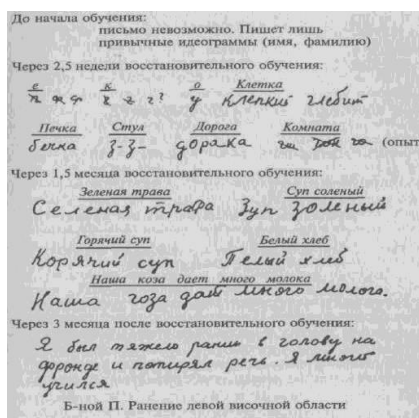 До начала обучения:
письмо невозможно. Пишет лишь
привычные идеограммы (имя, фамилию)
Через 2,5 недели восстановительного обучения:
е к о Клетка
у клепкий глебит
Печка Стул Дорога Комната
бечка з-з- дорака (опыт
Через 1,5 месяца восстановительного обучения:
Зеленая трава Суп соленый
Селеная трафа Зуп золеный
Горячий суп Белый хлеб
Корячий суп Пелый хлеб
Наша коза дает много молока
Наша гоза даит много молога.
Через 3 месяца после восстановительного обучения:
Я был тяжело ранин в голову на
форонде и потирял речь. Я много
училси
Б-ной П. Ранение левой височной области